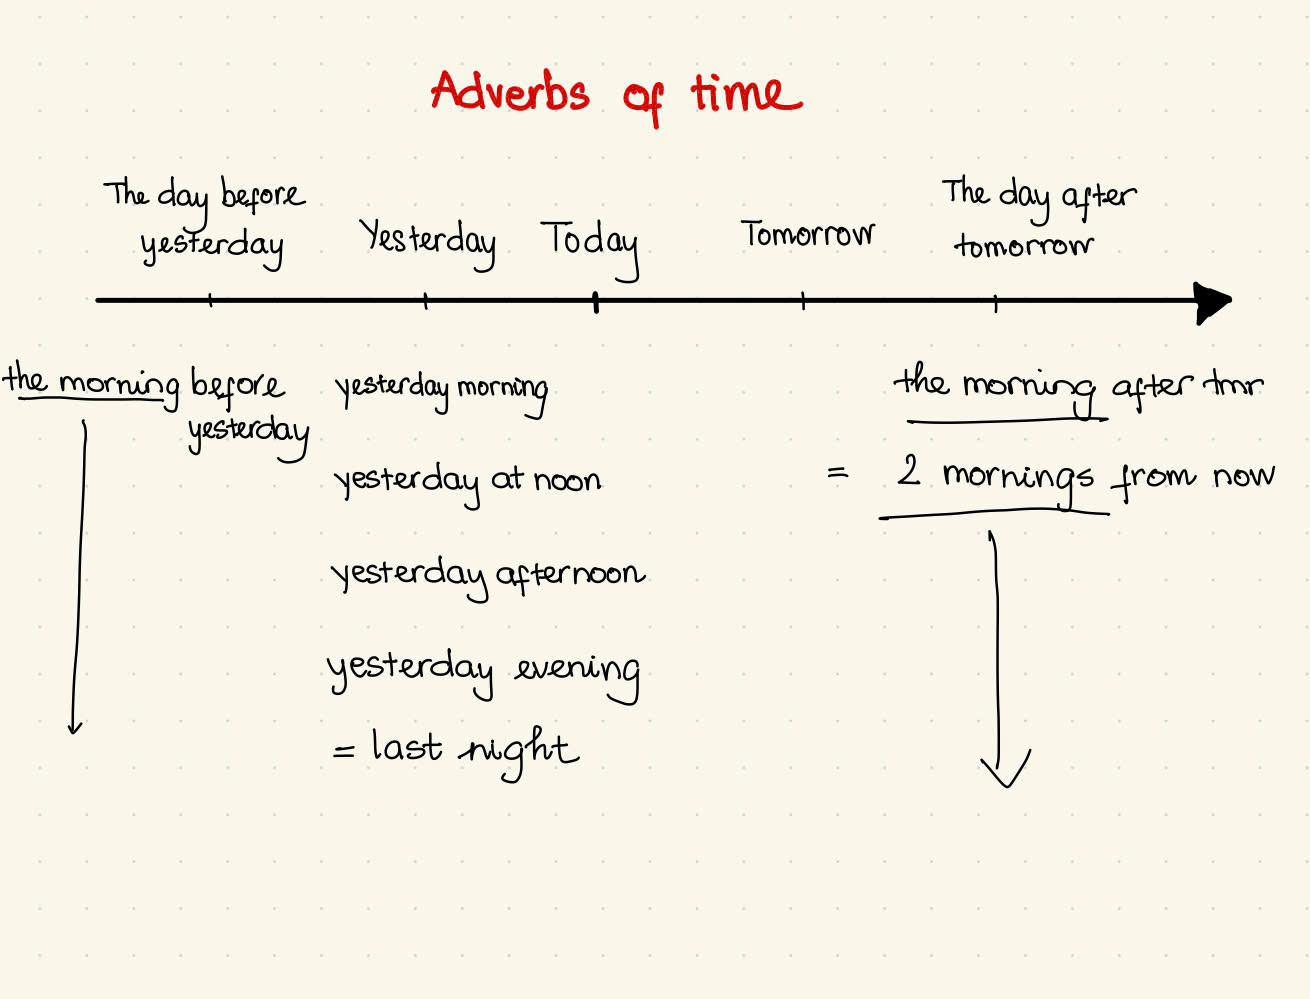 Adverbs of time
The day before
yesterday
Yesterday
Today
Tomorrow
The day after
tomorrow
the morning before
yesterday
yesterday morning
yesterday at noon
yesterday afternoon
yesterday evening
= last night
the morning after tmr
= 2 mornings from now